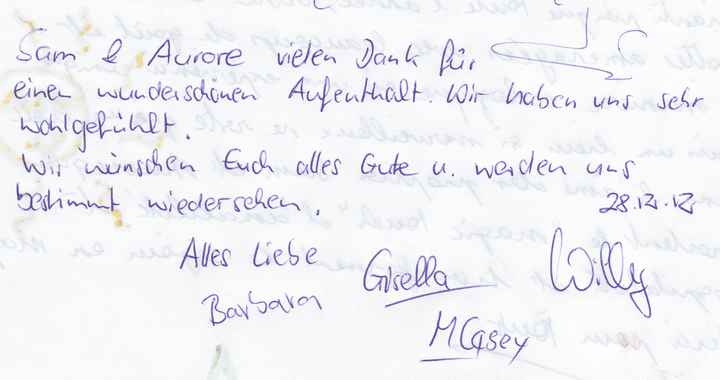 Sam & Aurore vielen Dank für
einen wunderschönen Aufenthalt. Wir haben uns sehr
wohlgefühlt.
Wir wünschen Euch alles Gute u. werden uns
bestimmt wiedersehen.
28.12.12
Alles Liebe
Gisella
Willy
Barbara